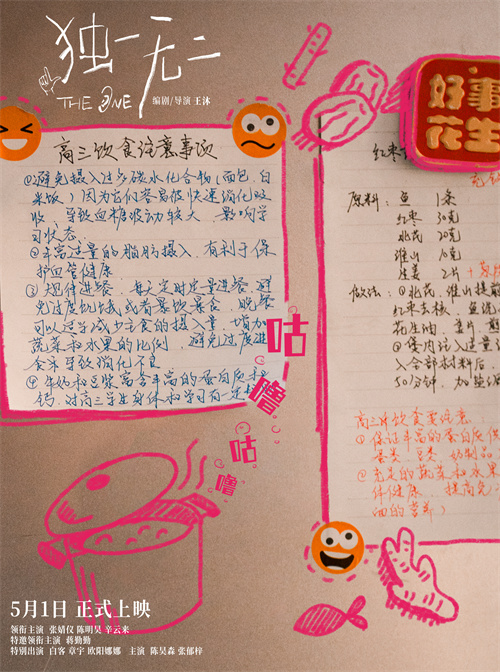 独一无二
THE ONE
编剧/导演 王沐
高三饮食注意事项
①避免摄入过多碳水化合物(面包,白
米饭)因为它们容易很快速消化吸
收,导致血糖波动较大,影响学
习状态.
②丰富适量的脂肪摄入,有利于保
护血管健康
③规律进餐,每天定时定量进餐,避
免过度饥饿或者暴饮暴食,晚餐
可以适当减少主食的摄入量,增加
蔬菜和水果的比例,避免过度进
食导致消化不良
④牛奶和豆浆富含丰富的蛋白质和
钙,对高三学生身体和学习有一定
咕
噜
咕
噜
好事
花生
红枣
原料: 鱼 1条
红枣 30克
北芪 20克
淮山 10克
生姜 2片
做法:①北芪,淮山提前
红枣去核,鱼洗
花生油,姜片
②煲内注入适量
入全部材料后,
50分钟,加盐
高三饮食要注意
①保证丰富的蛋白质供
蛋类 豆类 奶制品
②充足的蔬菜和水果
体健康 提高免
面的营养)
5月1日 正式上映
领衔主演 张婧仪 陈明昊 辛云来
特邀领衔主演 蒋勤勤
特别出演 白客 章宇 欧阳娜娜 主演 陈昊森 张郁梓